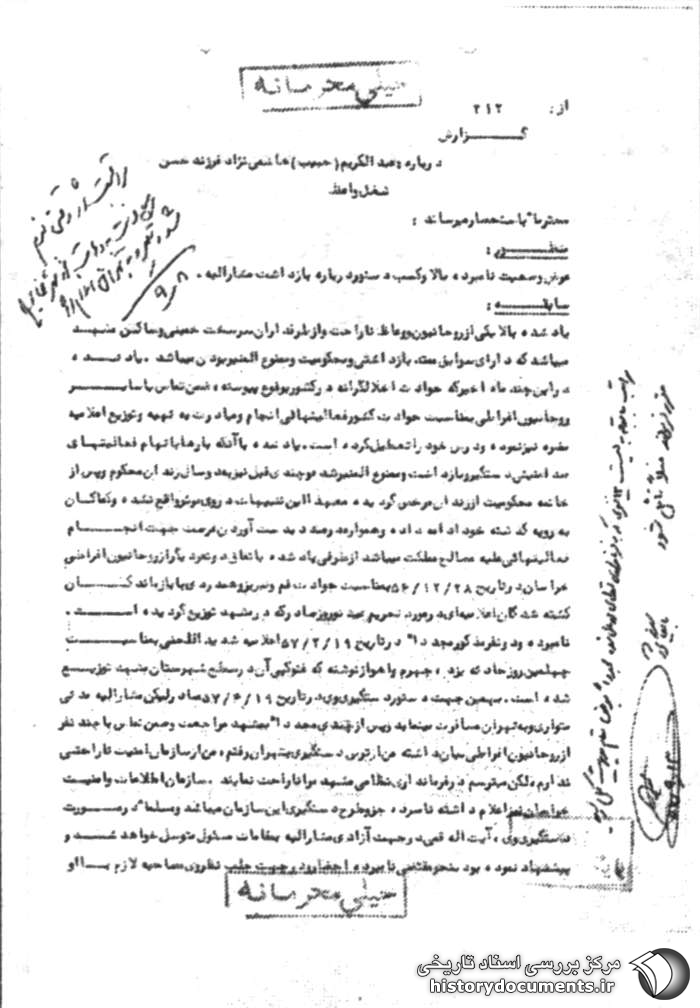 خیلی محرمانه
از: ۲۱۲
گزارش
درباره: عبدالکریم (حبیب) هاشمی نژاد فرزند حسن
شغل واعظ
محترما" باستحضار میرساند :
منظور :
عرض وضعیت نامبرده بالا و کسب دستور درباره بازداشت مشارالیه .
سابقه :
یاد شده بالا یکی از روحانیون و وعاظ ناراحت و از طرفداران سرسخت خمینی و ساکن مشهد
میباشد که دارای سوابق متعدد بازداشتی و محکومیت و ممنوع المنبر بودن میباشد . یاد شده
در این چند ماه اخیر که حوادث اخلالگرانه در کشور بوقوع پیوسته ، ضمن تماس با سایر
روحانیون افراطی بمناسبت حوادث کشور فعالیتهائی انجام و مبادرت به تهیه و توزیع اعلامیه
مضره نیز نموده و درس خود را تعطیل کرده است . یاد شده با آنکه بارها باتهام فعالیتهای
ضد امنیتی دستگیر و بازداشت و ممنوع المنبر شده و چندی قبل نیز به دو سال زندان محکوم و پس از
خاتمه محکومیت از زندان مرخص گردیده معهذا این تنبیهات در روی موثر واقع نشده و کماکان
به رویه گذشته خود ادامه داده و همواره درصدد بدست آوردن فرصت جهت انجام
فعالیتهائی علیه مصالح مملکت میباشد از طرفی یاد شده باتفاق دو نفر دیگر از روحانیون افراطی
خراسان در تاریخ ۵۶/۱۲/۲۸ بمناسبت حوادث قم و تبریز و همدردی با بازماندگان
کشته شدگان اعلامیه‌ای در مورد تحریم عید نوروز صادر که در مشهد توزیع گردیده است .
نامبرده و دو نفر مذکور مجددا" در تاریخ ۵۷/۲/۱۹ اعلامیه شدیداللحنی بمناسبت
چهلمین روز حادثه یزد ، جهرم و اهواز نوشته که فتوکپی آن در سطح شهرستان مشهد توزیع
شده است . بهمین جهت دستور دستگیری وی در تاریخ ۵۷/۶/۱۹ صادر لیکن مشارالیه مدتی
متواری و به تهران مسافرت مینماید و پس از چندی مجددا" بمشهد مراجعت و ضمن تماس با چند نفر
از روحانیون افراطی بیان داشته من از ترس دستگیری بتهران رفتم ، من از سازمان امنیت ناراحتی
ندارم ولکن میترسم در فرمانداری نظامی مشهد مرا ناراحت نمایند . سازمان اطلاعات و امنیت
خراسان نیز اعلام داشته نامبرده جزو طرح دستگیری این سازمان میباشد و مسلما" در صورت
دستگیری وی ، آیت اله قمی در جهت آزادی مشارالیه بمقامات مسئول متوسل خواهد شد و
پیشنهاد نموده بود بنحو مقتضی نامبرده احضار و در جهت جلب نظر وی مصاحبه لازم با او
خیلی محرمانه
مرکز بررسی اسناد تاریخی
historydocuments.ir